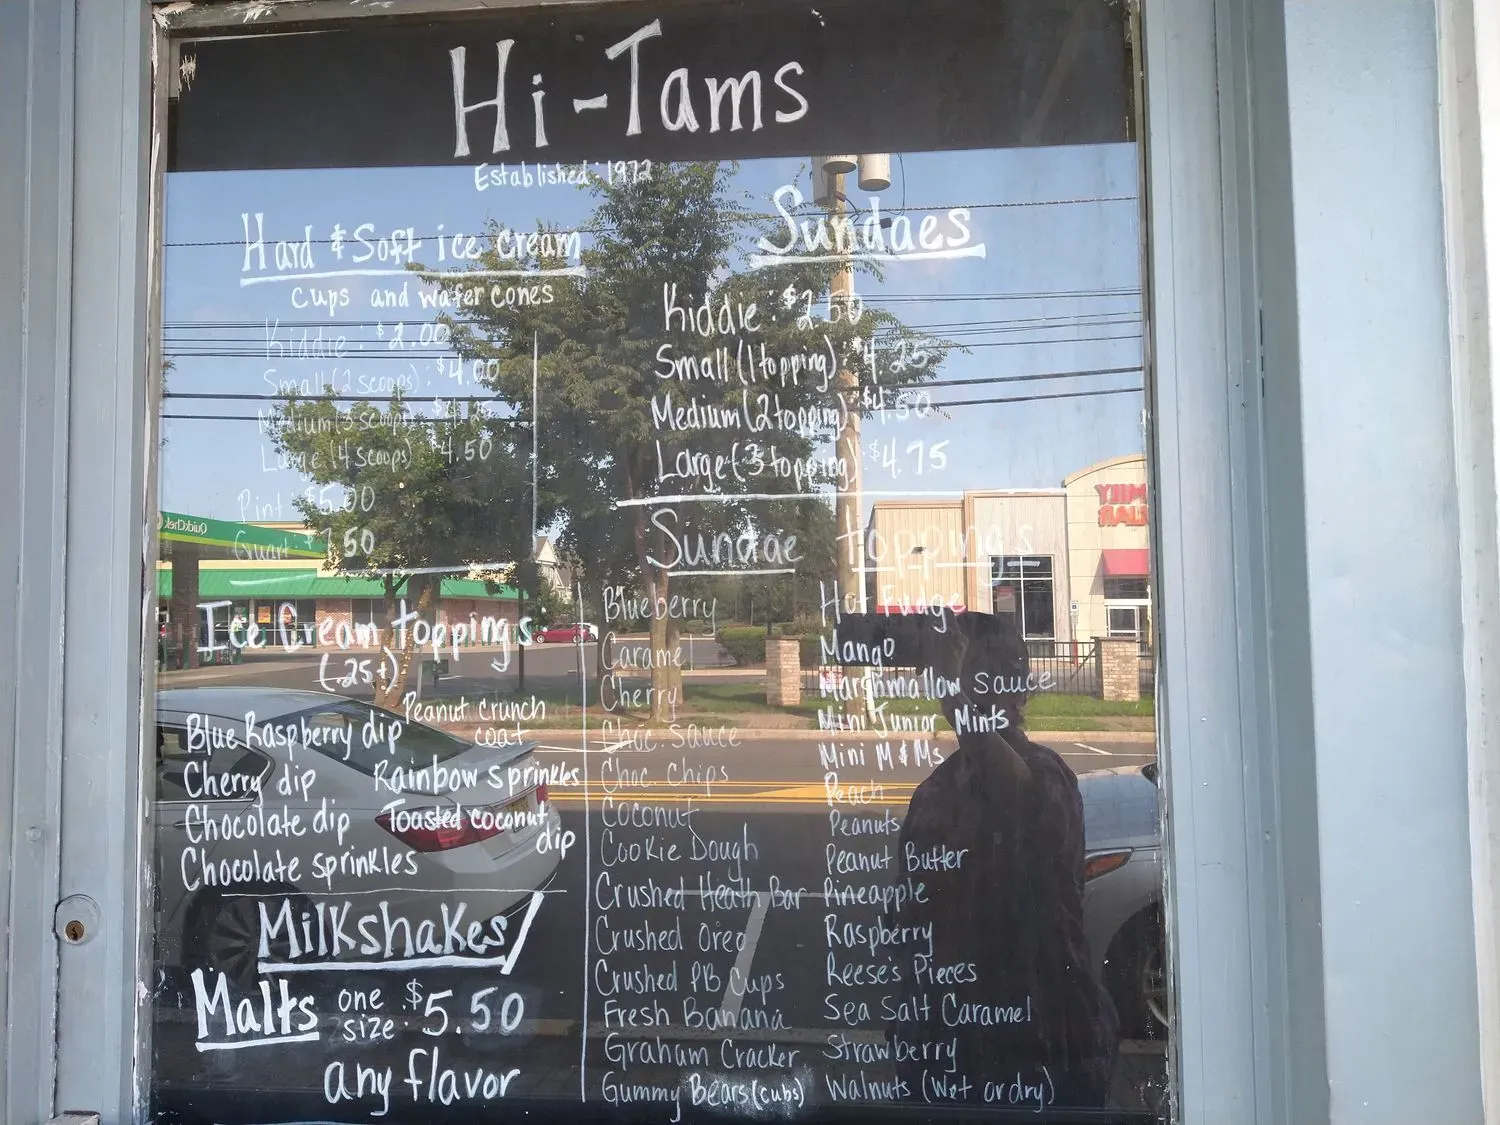 Hi-Tams
Established: 1972
Hard & Soft ice cream
cups and wafer cones
Kiddie: $2.00
Small (2 scoops): $4.00
Medium (3 scoops):
Large (4 scoops) $4.50
Pint: $5.00
Quart: $7.50
Ice Cream toppings
(.25¢)
Blue Raspberry dip
Cherry dip
Chocolate dip
Chocolate sprinkles
Peanut crunch
coat
Rainbow sprinkles
Toasted coconut
dip
Milkshakes/
Malts one size: $5.50
any flavor
Sundaes
Kiddie: $2.50
Small (1 topping): $4.25
Medium (2 topping): $4.50
Large (3 topping): $4.75
Sundae toppings
Blueberry
Caramel
Cherry
Choc. sauce
Choc. chips
Coconut
Cookie Dough
Crushed Heath Bar
Crushed Oreo
Crushed PB Cups
Fresh Banana
Graham Cracker
Gummy Bears (cubs)
Hot Fudge
Mango
Marshmallow sauce
Mini Junior Mints
Mini M & Ms
Peach
Peanuts
Peanut Butter
Pineapple
Raspberry
Reese's Pieces
Sea Salt Caramel
Strawberry
Walnuts (Wet or dry)
QuickChek